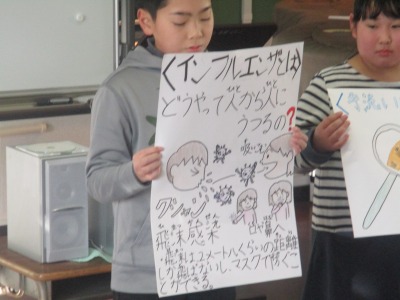 くインフルエンザとは
どうやって人から人に
うつるの?
吸いこむ
クシャン
飛沫感染
・飛沫は2メートルくらいの距離
しか飛ばないし、マスクで防ぐこ
とができる。